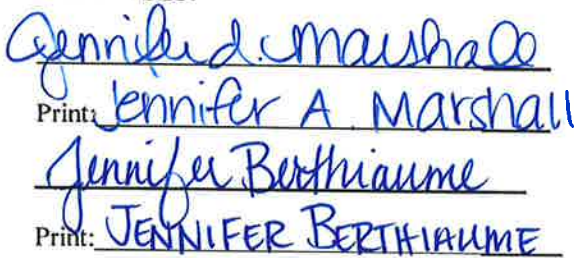 Jennifer A. Marshall
Print: Jennifer A. Marshall
Jennifer Berthiaume
Print: JENNIFER BERTHIAUME